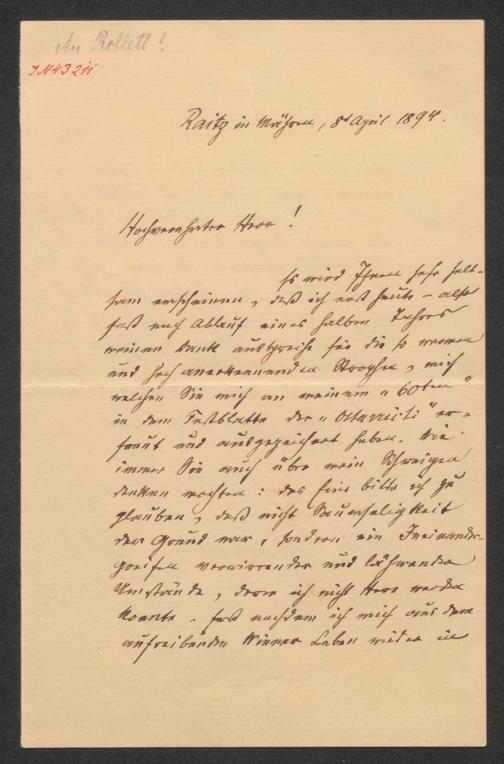 An Rollett?
IN 43211
Raitz in Mähren, 8t April 1894.
Hochverehrter Herr!
Es wird Ihnen sehr selt-
sam erscheinen, daß ich erst heute – also
fast nach Ablauf eines halben Jahres
meinen Dank ausspreche für die so warmen
und hoch anerkennenden Strophen, mit
welchen Sie mich an meinem "60ten"
in dem Festblatte der "Ottarristi" er-
freut und ausgezeichnet haben. Wie
immer Sie auch über mein Schweigen
denken mochten: das Eine bitte ich zu
glauben, daß nicht Saumseligkeit
der Grund war, sondern ein Ineinander-
greifen verwirrender und lähmender
Umstände, deren ich nicht Herr werden
konnte. Erst nachdem ich mich aus dem
aufreibenden Wiener Leben wieder in